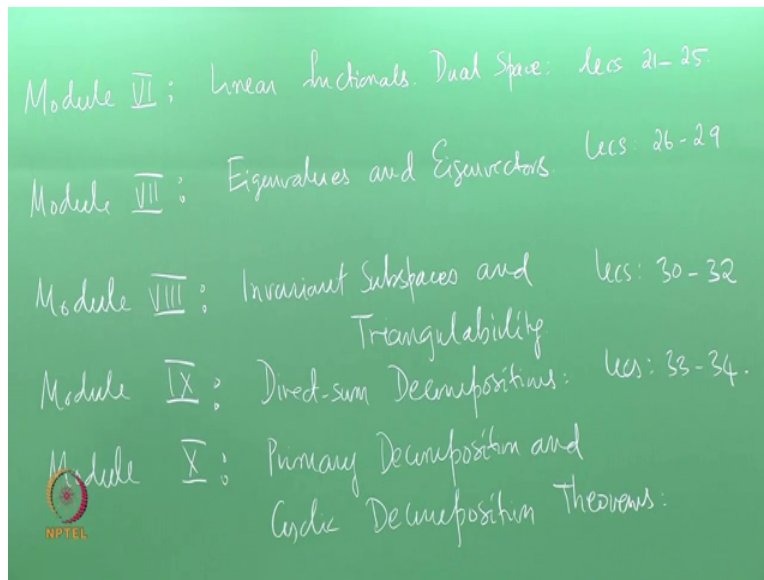 Module VI: Linear functionals. Dual Space: lecs 21-25.
Module VII: Eigenvalues and Eigenvectors. lecs: 26-29
Module VIII: Invariant Subspaces and lecs: 30-32
Triangulability
Module IX: Direct-sum Decompositions: lecs: 33-34.
Module X: Primary Decomposition and
Cyclic Decomposition Theorems:
NPTEL